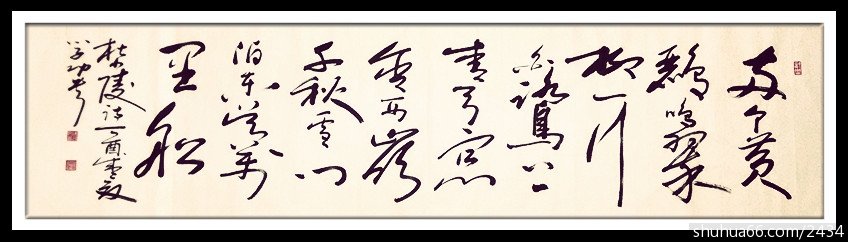 两个黄
鹂鸣翠
柳一行
白鹭上
青天窗
含西岭
千秋雪门
泊东吴万
里船
杜陵诗丁酉
shuhua66.com/2434